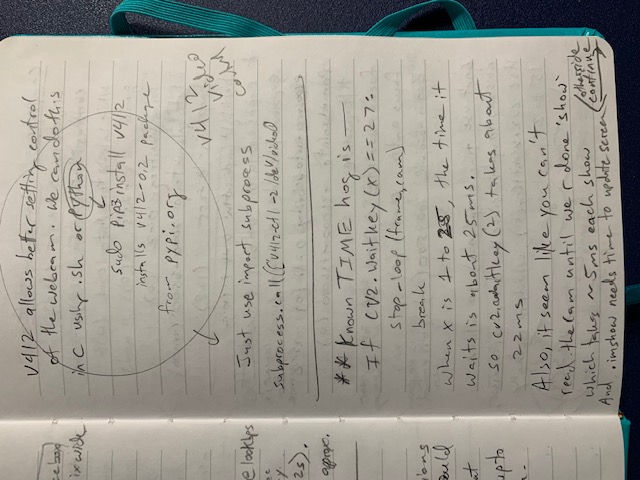 v4l2 allows better setting control
of the webcam. We can do this
in C using .sh or python
sudo pip3 install v4l2
installs v4l2-0.2 package
from pypi.org
v4l2
video
control
Just use import subprocess
subprocess.call(['v4l2-ctl -2 /dev/video0
** Known TIME hog is —
If cv2.waitkey(x) == 27:
stop_loop(frame, cam)
break
when x is 1 to 25, the time it
waits is about 25ms.
so cv2.waitkey(2) takes about
22ms
Also, it seem like you can't
read the cam until we r done 'show'
which takes ~5ms each show
And .imshow needs time to update screen
(otherside
continue
ce box
ix wide
e lookups
2s).
approx.
ions
ould
at
upto